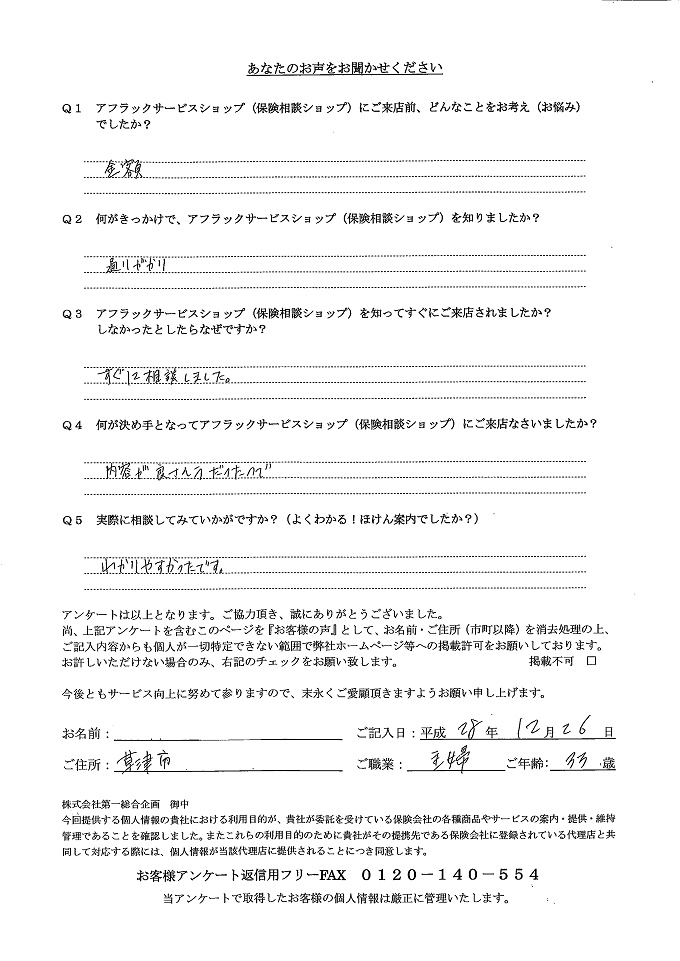 あなたのお声をお聞かせください
Q1 アフラックサービスショップ(保険相談ショップ)にご来店前、どんなことをお考え(お悩み)
でしたか?
金額
Q2 何がきっかけで、アフラックサービスショップ(保険相談ショップ)を知りましたか?
通りがかり
Q3 アフラックサービスショップ(保険相談ショップ)を知ってすぐにご来店されましたか?
しなかったとしたらなぜですか?
すぐに相談しました。
Q4 何が決め手となってアフラックサービスショップ(保険相談ショップ)にご来店なさいましたか?
内容が良さそうだったので
Q5 実際に相談してみていかがですか?(よくわかる!ほけん案内でしたか?)
わかりやすかったです。
アンケートは以上となります。ご協力頂き、誠にありがとうございました。
尚、上記アンケートを含むこのページを『お客様の声』として、お名前・ご住所(市町以降)を消去処理の上、
ご記入内容からも個人が一切特定できない範囲で弊社ホームページ等への掲載許可をお願いしております。
お許しいただけない場合のみ、右記のチェックをお願い致します。 掲載不可 □
今後ともサービス向上に努めて参りますので、末永くご愛顧頂きますようお願い申し上げます。
お名前: ご記入日:平成 28 年 12 月 26 日
ご住所: 草津市 ご職業: 主婦 ご年齢: 33 歳
株式会社第一総合企画 御中
今回提供する個人情報の貴社における利用目的が、貴社が委託を受けている保険会社の各種商品やサービスの案内・提供・維持
管理であることを確認しました。またこれらの利用目的のために貴社がその提携先である保険会社に登録されている代理店と共
同して対応する際には、個人情報が当該代理店に提供されることにつき同意します。
お客様アンケート返信用フリーFAX 0120-140-554
当アンケートで取得したお客様の個人情報は厳正に管理いたします。